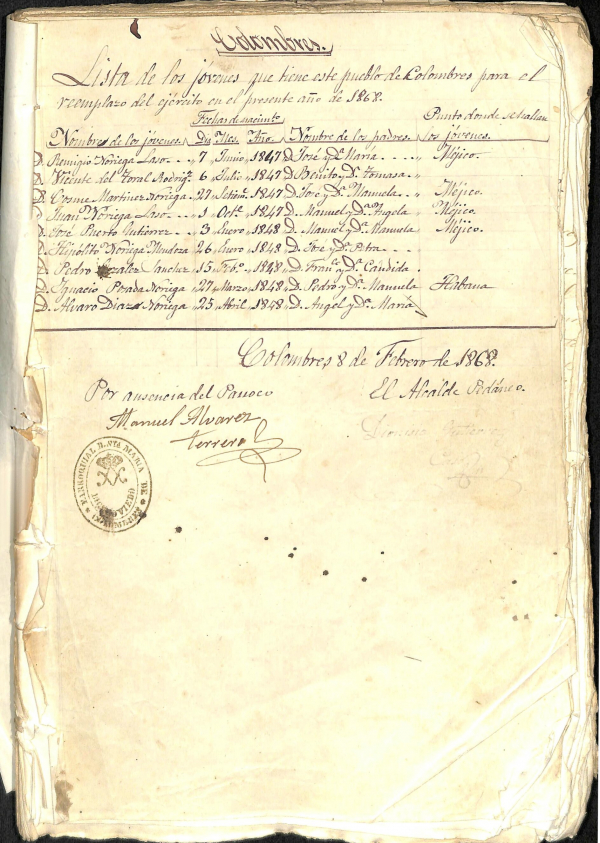 Colombres.
Lista de los jóvenes que tiene este pueblo de Colombres para el
reemplazo del ejército en el presente año de 1868.
Fechas de nacimto Punto donde se hallan
Nombres de los jóvenes. Dia Mes. Año. Nombre de los padres. los jóvenes.
D. Remigio Noriega Laso. 7 Junio 1847 D. José y Dª Maria. Méjico.
D. Vicente del Toral Rodrigz. 6 Julio 1847 D. Benito y Dª Tomasa.
D. Cosme Martinez Noriega 27 Setiem. 1847 D. José y Dª Manuela. Méjico.
D. Juan Noriega Laso. 1 Octe. 1847 D. Manuel y Dª Angela Méjico.
D. José Puerto Gutiérrez. 3 Enero 1848 D. Manuel y Dª Manuela Méjico.
D. Hipólito Noriega Mendoza 26 Enero 1848 D. José y Dª Petra.
D. Pedro Sanchez 15 Febo. 1848 D. Franco. y Dª Cándida
D. Ignacio Posada Noriega 27 Marzo 1848 D. Pedro y Dª Manuela Habana
D. Alvaro Diaz Noriega 25 Abril 1848 D. Angel y Dª Maria
Colombres 8 de Febrero de 1868.
Por ausencia del Parroco El Alcalde Pedáneo.
Manuel Alvarez
Terrero
PARROQUIAL D STA MARIA DE
OVIEDO